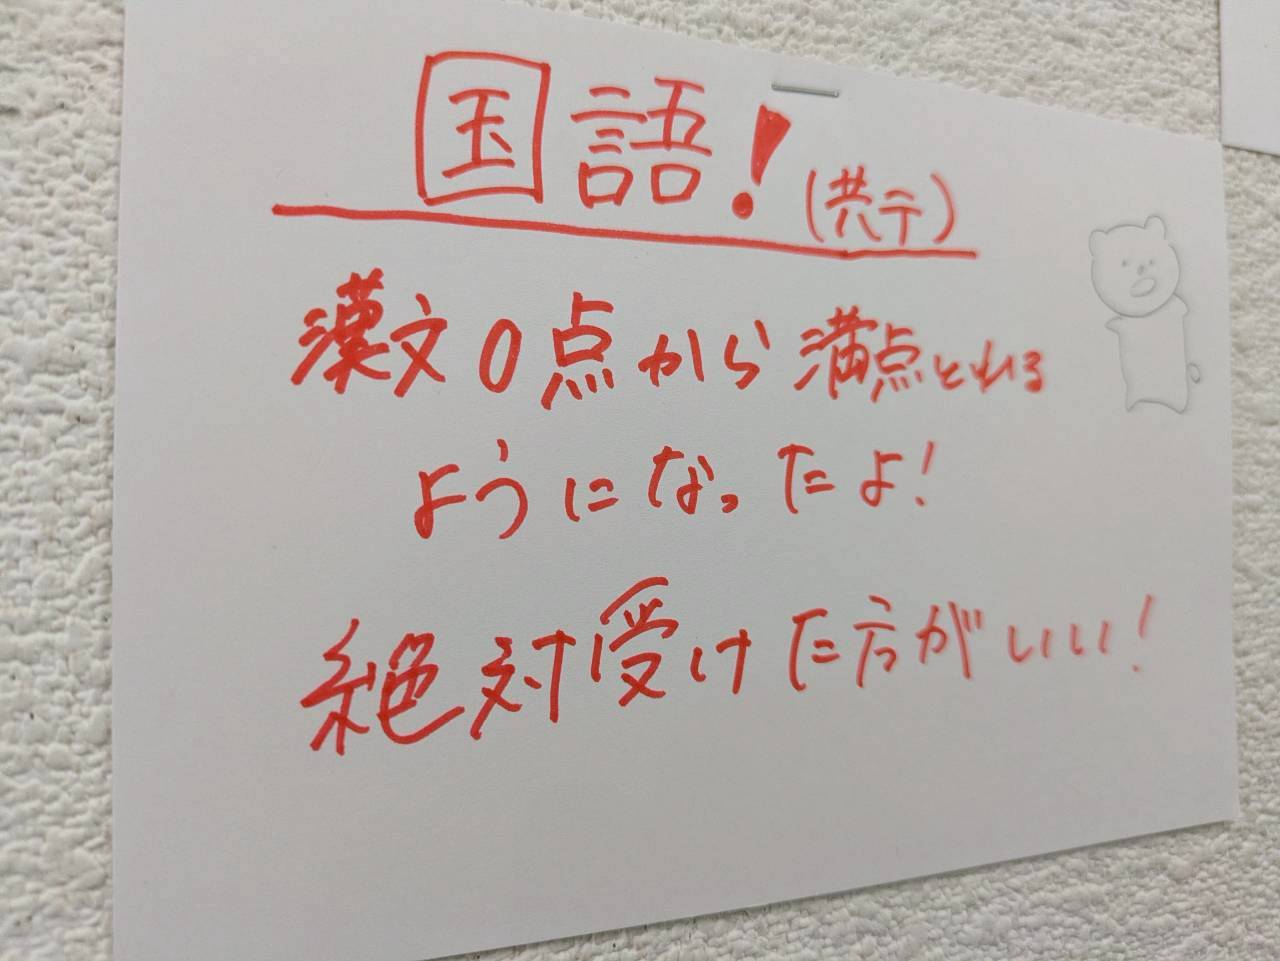 国語!(共テ)
漢文0点から満点とれる
ようになったよ!
絶対受けた方がいい!